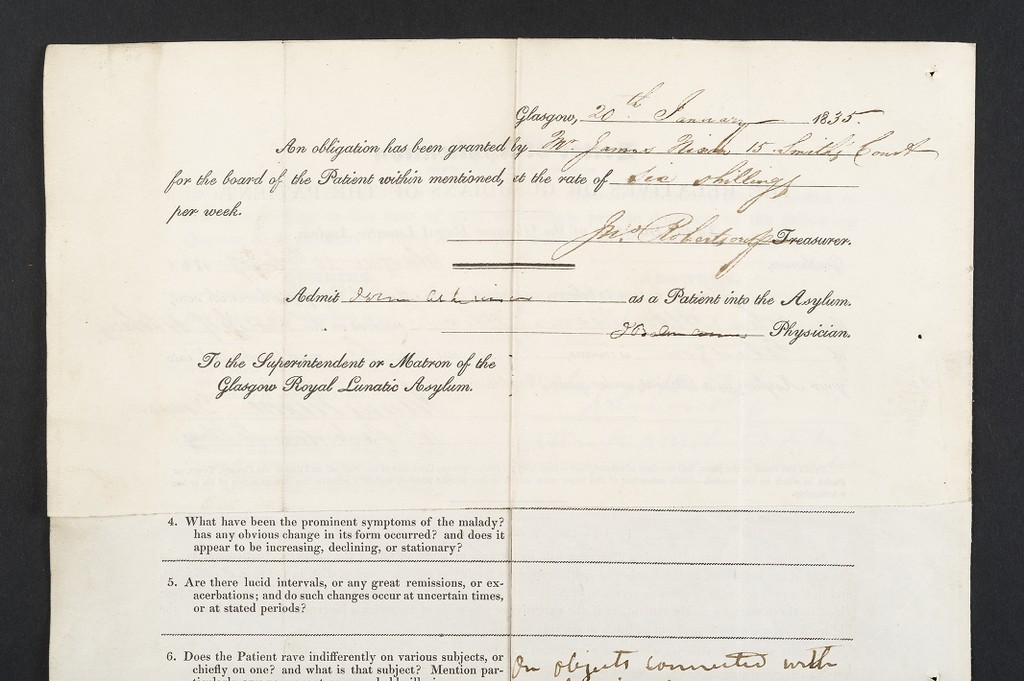 Glasgow, 20th January 1835.
An obligation has been granted by Mr. James 15 Smith's Court
for the board of the Patient within mentioned, at the rate of six shillings
per week.
Jno. Robertson Treasurer.
Admit as a Patient into the Asylum.
Physician.
To the Superintendent or Matron of the
Glasgow Royal Lunatic Asylum.
4. What have been the prominent symptoms of the malady?
has any obvious change in its form occurred? and does it
appear to be increasing, declining, or stationary?
5. Are there lucid intervals, or any great remissions, or ex-
acerbations; and do such changes occur at uncertain times,
or at stated periods?
6. Does the Patient rave indifferently on various subjects, or
On objects connected with
chiefly on one? and what is that subject? Mention par-